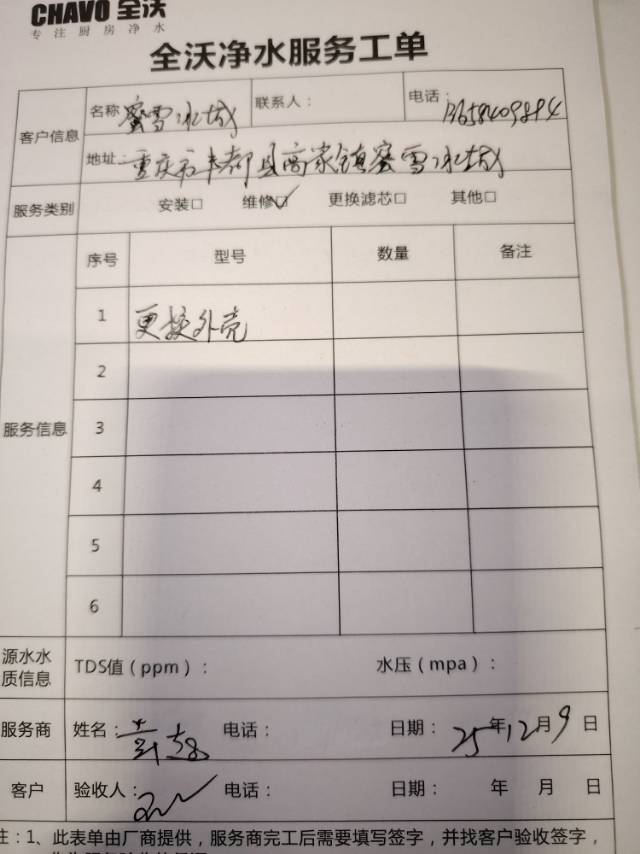 CHAVO 全沃
专注厨房净水
全沃净水服务工单
客户信息 名称 蜜雪冰城 联系人： 电话：13658409894
地址：重庆市丰都县高家镇蜜雪冰城
服务类别 安装□ 维修☑ 更换滤芯□ 其他□
服务信息 序号 型号 数量 备注
1 更换外壳
2
3
4
5
6
源水水质信息 TDS值（ppm）： 水压（mpa）：
服务商 姓名： 电话： 日期：25年12月9日
客户 验收人： 电话： 日期： 年 月 日
注：1、此表单由厂商提供，服务商完工后需要填写签字，并找客户验收签字，